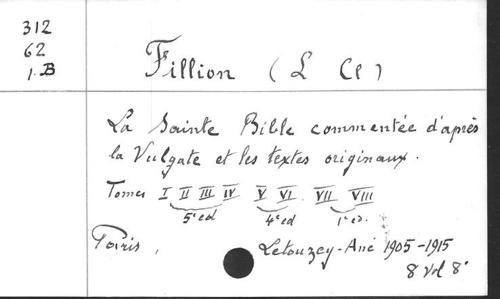 312
62
1.B
Fillion (L Cl)
La Sainte Bible commentée d'après
la Vulgate et les textes originaux.
Tomes I II III IV V VI VII VIII
5e ed 4e ed 1e ed.
Paris, Letouzey-Ané 1905-1915
8 vol 8°